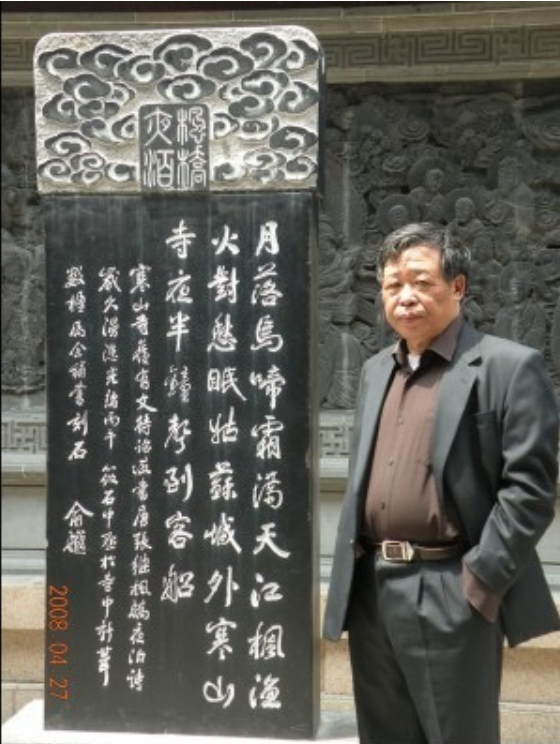 楓橋
夜泊
月落烏啼霜滿天江楓漁
火對愁眠姑蘇城外寒山
寺夜半鐘聲到客船
寒山寺舊有文待詔所書唐張繼楓橋夜泊詩
歲久漫漶光緒丙午 筱石中丞於寺中新葺
數楹屬余補書刻石 俞樾
2008.04.27